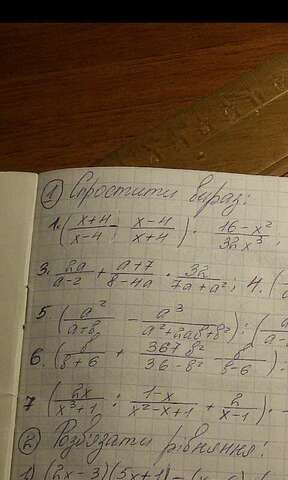 ① Спростити вираз:
1. (x+4/x-4 - x-4/x+4) · 16-x²/32x³
3. 2a/a-2 + a+7/8-4a · 32/7a+a²; 4. (
5 (a²/a+b - a³/a²+2ab+b²) : (a/a-
6. (b/b+6 + 36+b²/36-b² - b/b-6) :
7 (2x/x³+1 : 1-x/x²-x+1 + 2/x-1) · -
② Розвязати рівняння:
1) (2x-3)(5x+1)-(x-